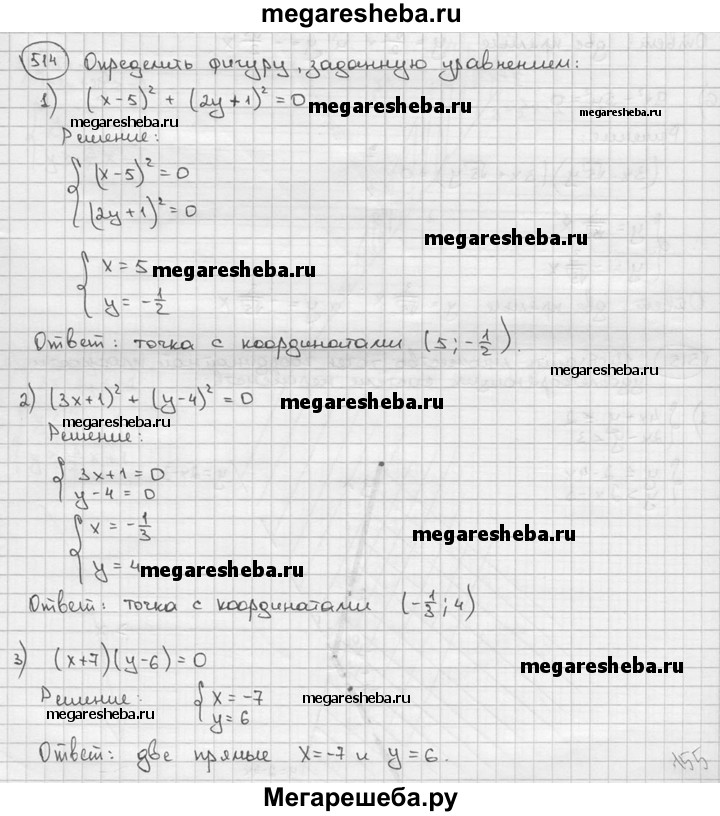 megaresheba.ru
514 Определить фигуру, заданную уравнением:
1) (x-5)² + (2y+1)² = 0 megaresheba.ru
megaresheba.ru
Решение:
{ (x-5)² = 0
(2y+1)² = 0
megaresheba.ru
{ x = 5 megaresheba.ru
y = -1/2
Ответ: точка с координатами (5; -1/2).
megaresheba.ru
2) (3x+1)² + (y-4)² = 0 megaresheba.ru
megaresheba.ru
Решение:
{ 3x+1 = 0
y-4 = 0
{ x = -1/3 megaresheba.ru
y = 4 megaresheba.ru
Ответ: точка с координатами (-1/3; 4)
3) (x+7)(y-6) = 0 megaresheba.ru
Решение: { x = -7 megaresheba.ru megaresheba.ru
megaresheba.ru y = 6
Ответ: две прямые x=-7 и y=6.
155
Мегарешеба.ру